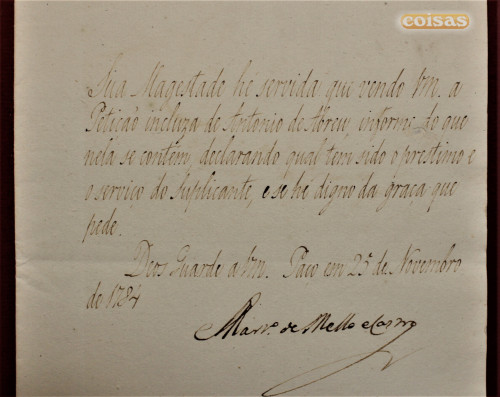 coisas
Sua Magestade he servida que vendo Vm. a
Petição incluza de Antonio de Abreu, informe do que
nela se contém, declarando qual tem sido o prestimo e
o serviço do Suplicante, e se hé digno da graça que
pede.
Deos Guarde a Vm. Paço em 25 de Novembro
de 1784
Mart.º de Mello e Castro